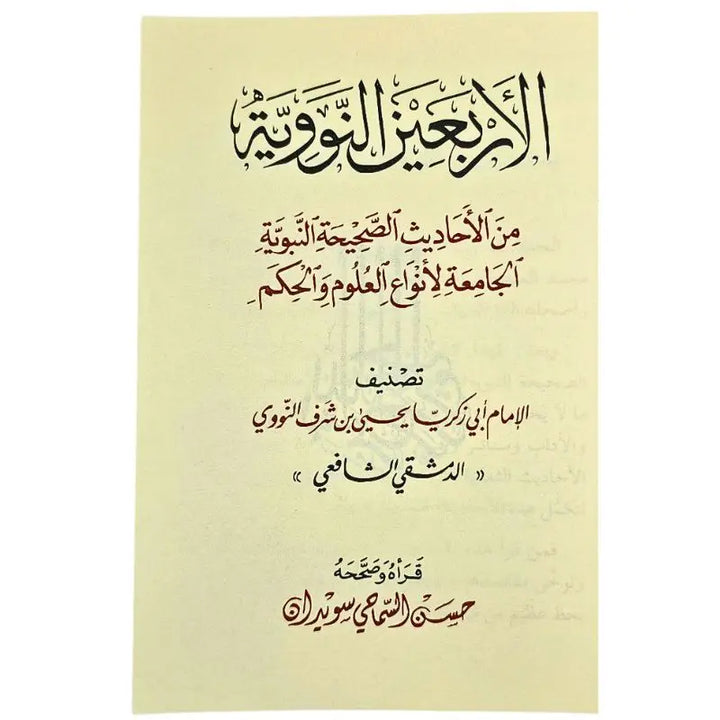 الأَرْبَعِينَ النَّوَوِيَّةُ
مِنَ الأَحَادِيثِ الصَّحِيْحَةِ النَّبَوِيَّةِ
الجَامِعَةِ لِأَنْوَاعِ العُلُومِ وَالْحِكَمِ
تصْنيف
الإمام أبي زكريّا يحيى بن شرف النَّووي
« الدمشقي الشافعي »
قَرَأَهُ وَصَحَّحَهُ
حسن السَّماحي سويدان